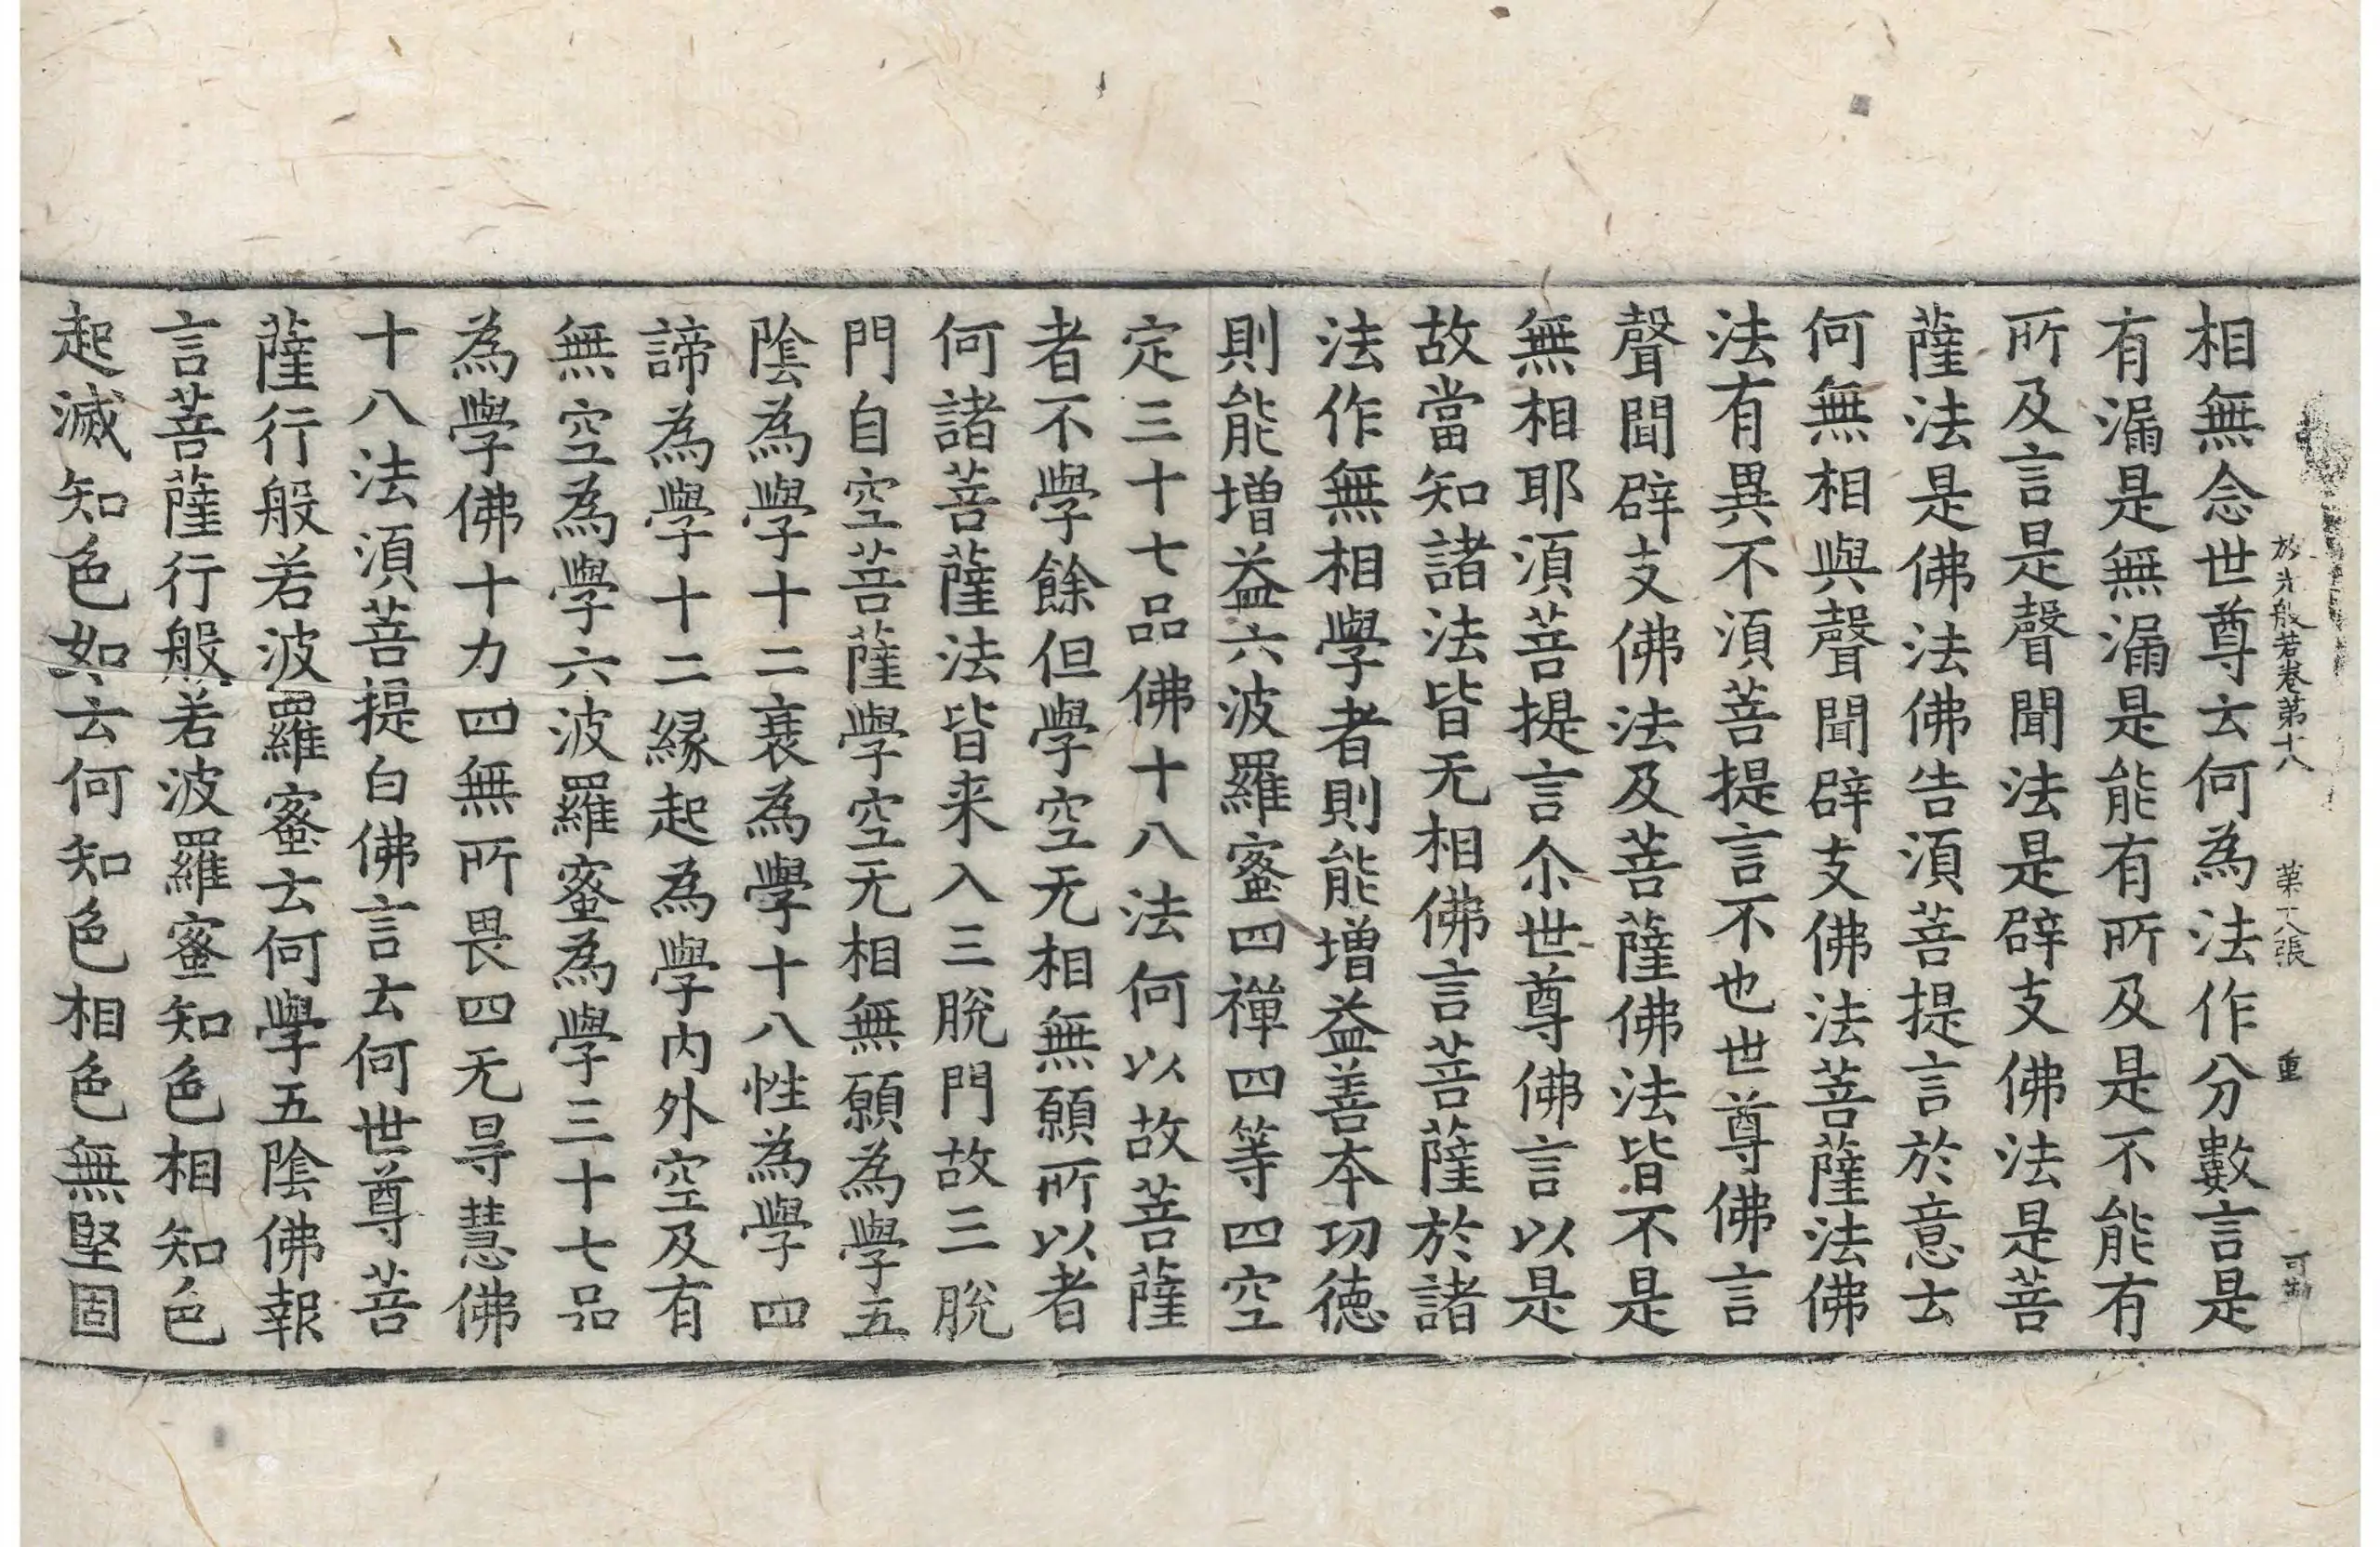 放光般若卷第十八 第十八張 重
相無念世尊云何為法作分數言是
有漏是無漏是能有所及是不能有
所及言是聲聞法是辟支佛法是菩
薩法是佛法佛告須菩提言於意云
何無相與聲聞辟支佛法菩薩法佛
法有異不須菩提言不也世尊佛言
聲聞辟支佛法及菩薩佛法皆不是
無相耶須菩提言尒世尊佛言以是
故當知諸法皆无相佛言菩薩於諸
法作無相學者則能增益善本功德
則能增益六波羅蜜四禪四等四空
定三十七品佛十八法何以故菩薩
者不學餘但學空无相無願所以者
何諸菩薩法皆来入三脫門故三脫
門自空菩薩學空无相無願為學五
陰為學十二衰為學十八性為學四
諦為學十二緣起為學內外空及有
無空為學六波羅蜜為學三十七品
為學佛十力四無所畏四无㝵慧佛
十八法須菩提白佛言云何世尊菩
薩行般若波羅蜜云何學五陰佛報
言菩薩行般若波羅蜜知色相知色
起滅知色如云何知色相色無堅固